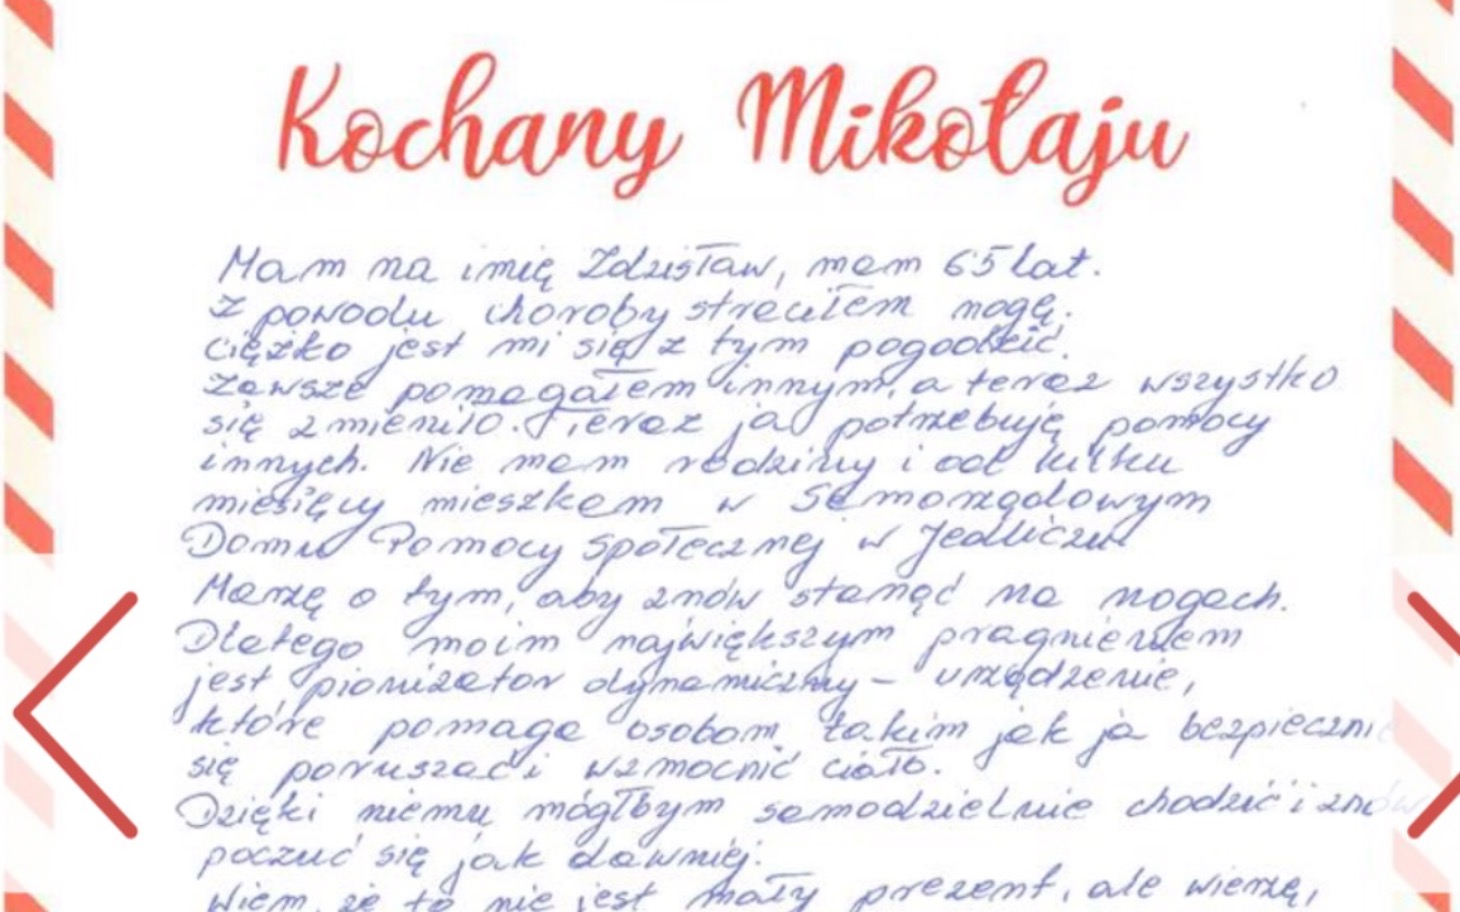 Kochany Mikołaju
Mam na imię Zdzisław, mam 65 lat.
Z powodu choroby straciłem nogę.
Ciężko jest mi się z tym pogodzić.
Zawsze pomagałem innym, a teraz wszystko
się zmieniło. Teraz ja potrzebuję pomocy
innych. Nie mam rodziny i od kilku
miesięcy mieszkam w Samorządowym
Domu Pomocy Społecznej w Jedliczu
Marzę o tym, aby znów stanąć na nogach.
Dlatego moim największym pragnieniem
jest pionizator dynamiczny – urządzenie,
które pomaga osobom takim jak ja bezpiecznie
się poruszać i wzmocnić ciało.
Dzięki niemu mógłbym samodzielnie chodzić i znów
poczuć się jak dawniej.
Wiem, że to nie jest mały prezent, ale wierzę,